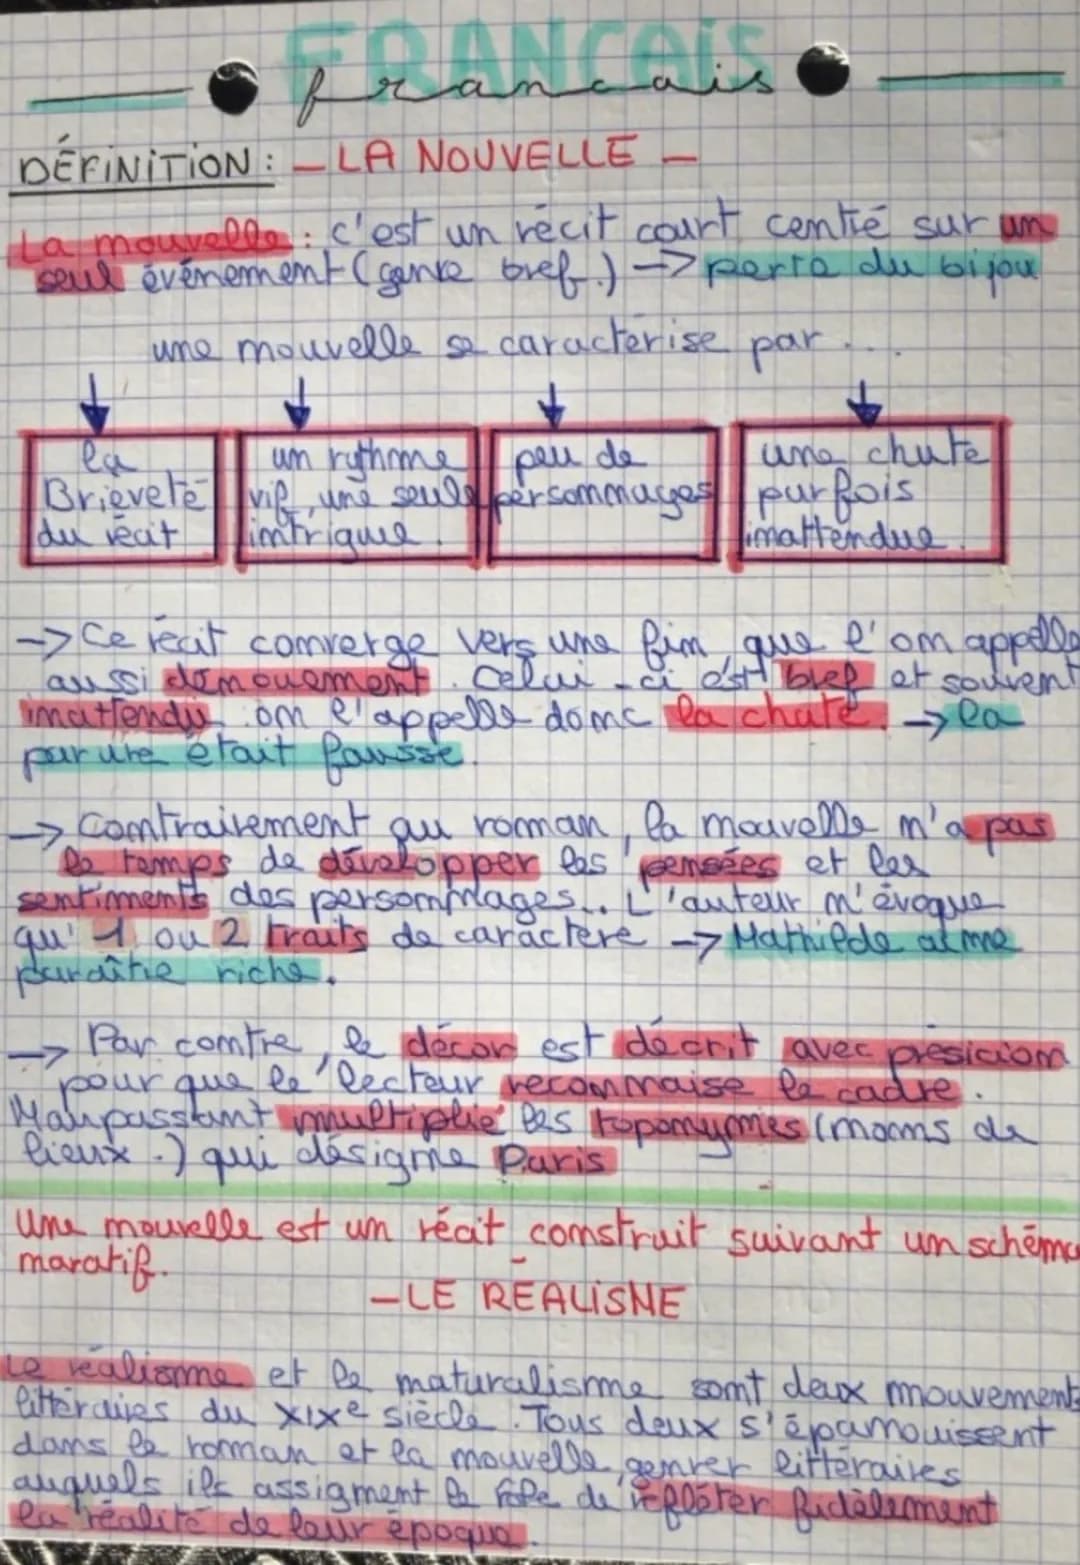 FRANCAIS
francais
DÉFINITION : - LA NOUVELLE -
La nouvelle : c'est un récit court centré sur un
seul événement (genre bref.) -> perte du bijou
une nouvelle se caractérise par ...
la
Brièveté
du récit
un rythme
vif, une seule
intrigue.
peu de
personnages
une chute
parfois
inattendue.
-> Ce récit converge vers une fin que l'on appelle
aussi dénouement. Celui-ci est bref et souvent
inattendu. on l'appelle donc la chute. -> la
parure était fausse.
-> Contrairement au roman, la nouvelle n'a pas
le temps de développer les pensées et les
sentiments des personnages.. L'auteur n'évoque
qu'1 ou 2 traits de caractère -> Mathilde aime
paraître riche.
-> Par contre, le décor est décrit avec présicion
pour que le lecteur reconnaise le cadre.
Maupassant multiplie les toponymies (noms de
lieux.) qui désigne Paris
Une nouvelle est un récit construit suivant un schéma
naratif.
- LE RÉALISME
Le réalisme et le naturalisme sont deux mouvements
littéraires du XIXe siècle. Tous deux s'épanouissent
dans le roman et la nouvelle, genrer littéraires
auquels ils assignent le rôle de refléter fidèlement
la réalité de leur époque.